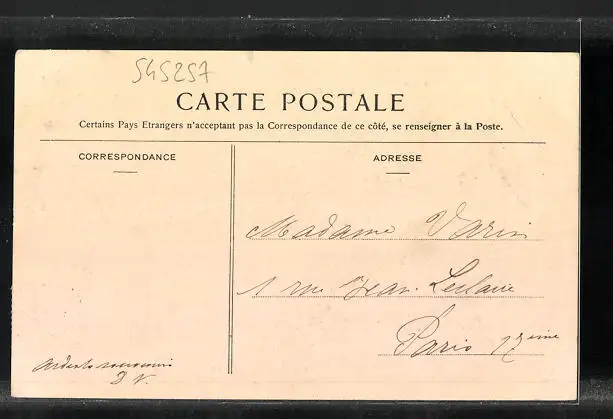 545257
CARTE POSTALE
Certains Pays Etrangers n'acceptent pas la Correspondance de ce côté, se renseigner à la Poste.
CORRESPONDANCE
ADRESSE
Madame Varin
1 rue Jean Leclaire
Paris 17eme
D V.